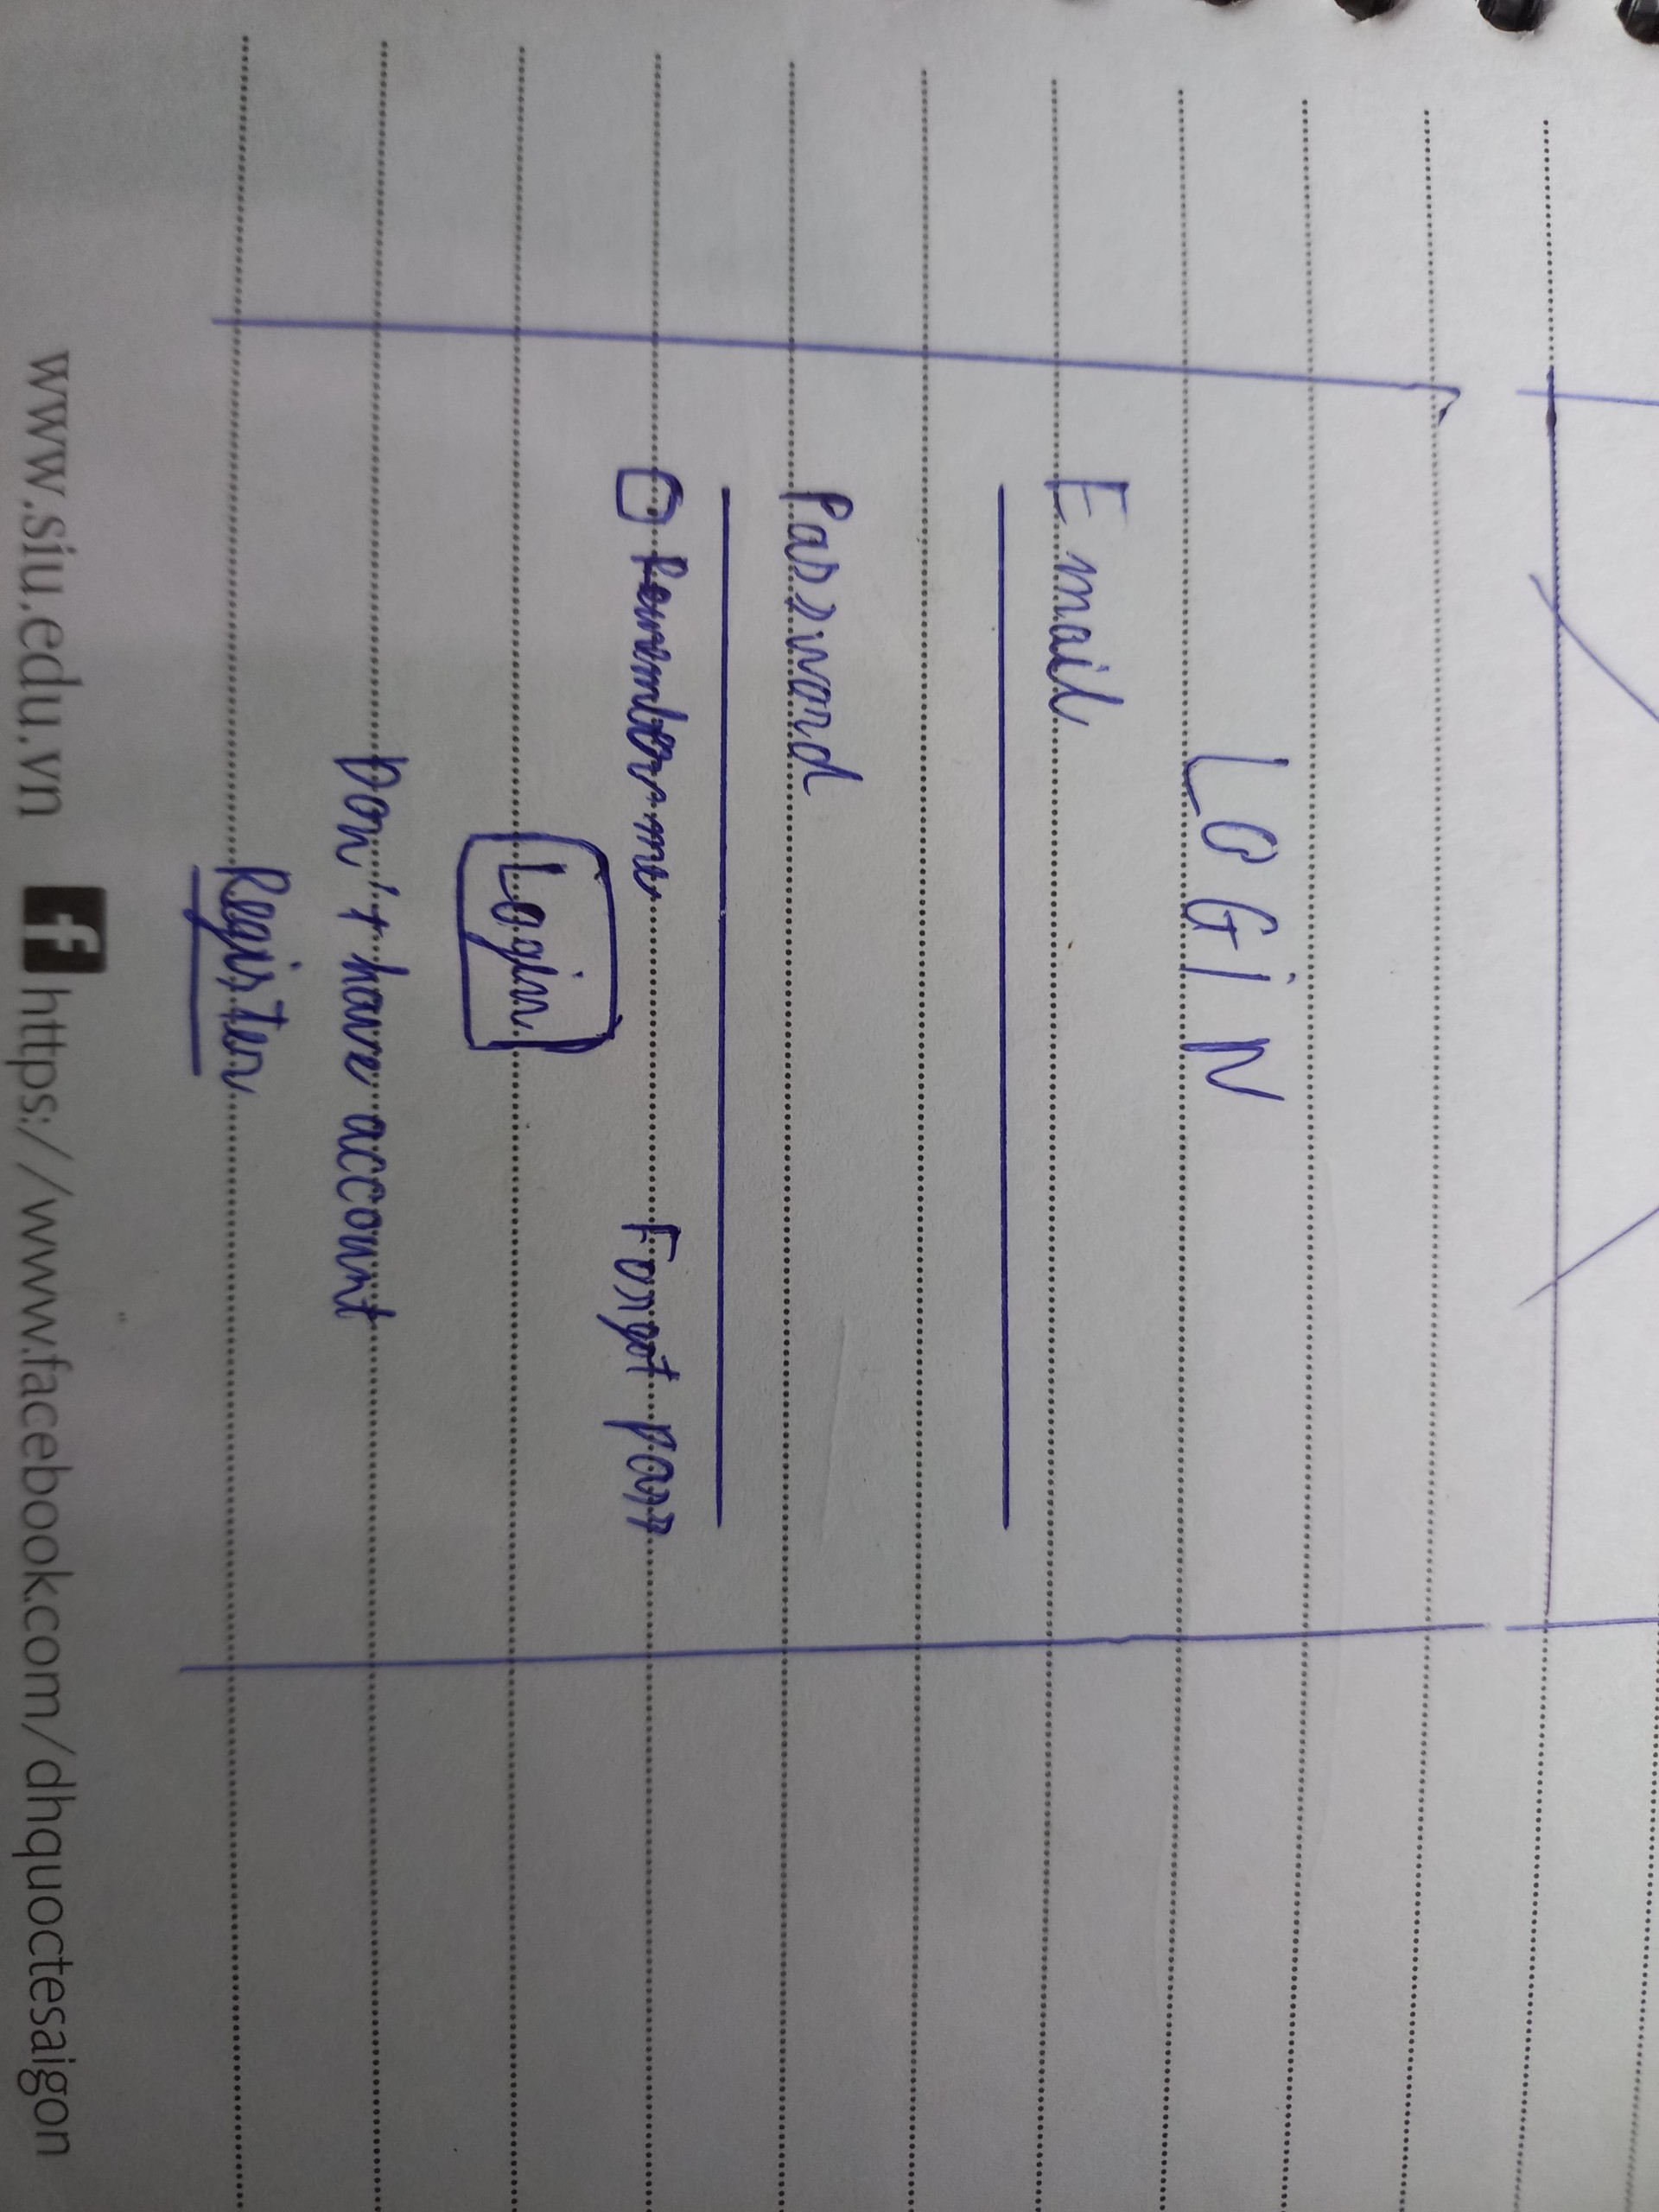 LOGIN
Email
Password
Remember me Forgot pass
Login
Don't have account
Register
www.siu.edu.vn f https://www.facebook.com/dhquoctesaigon